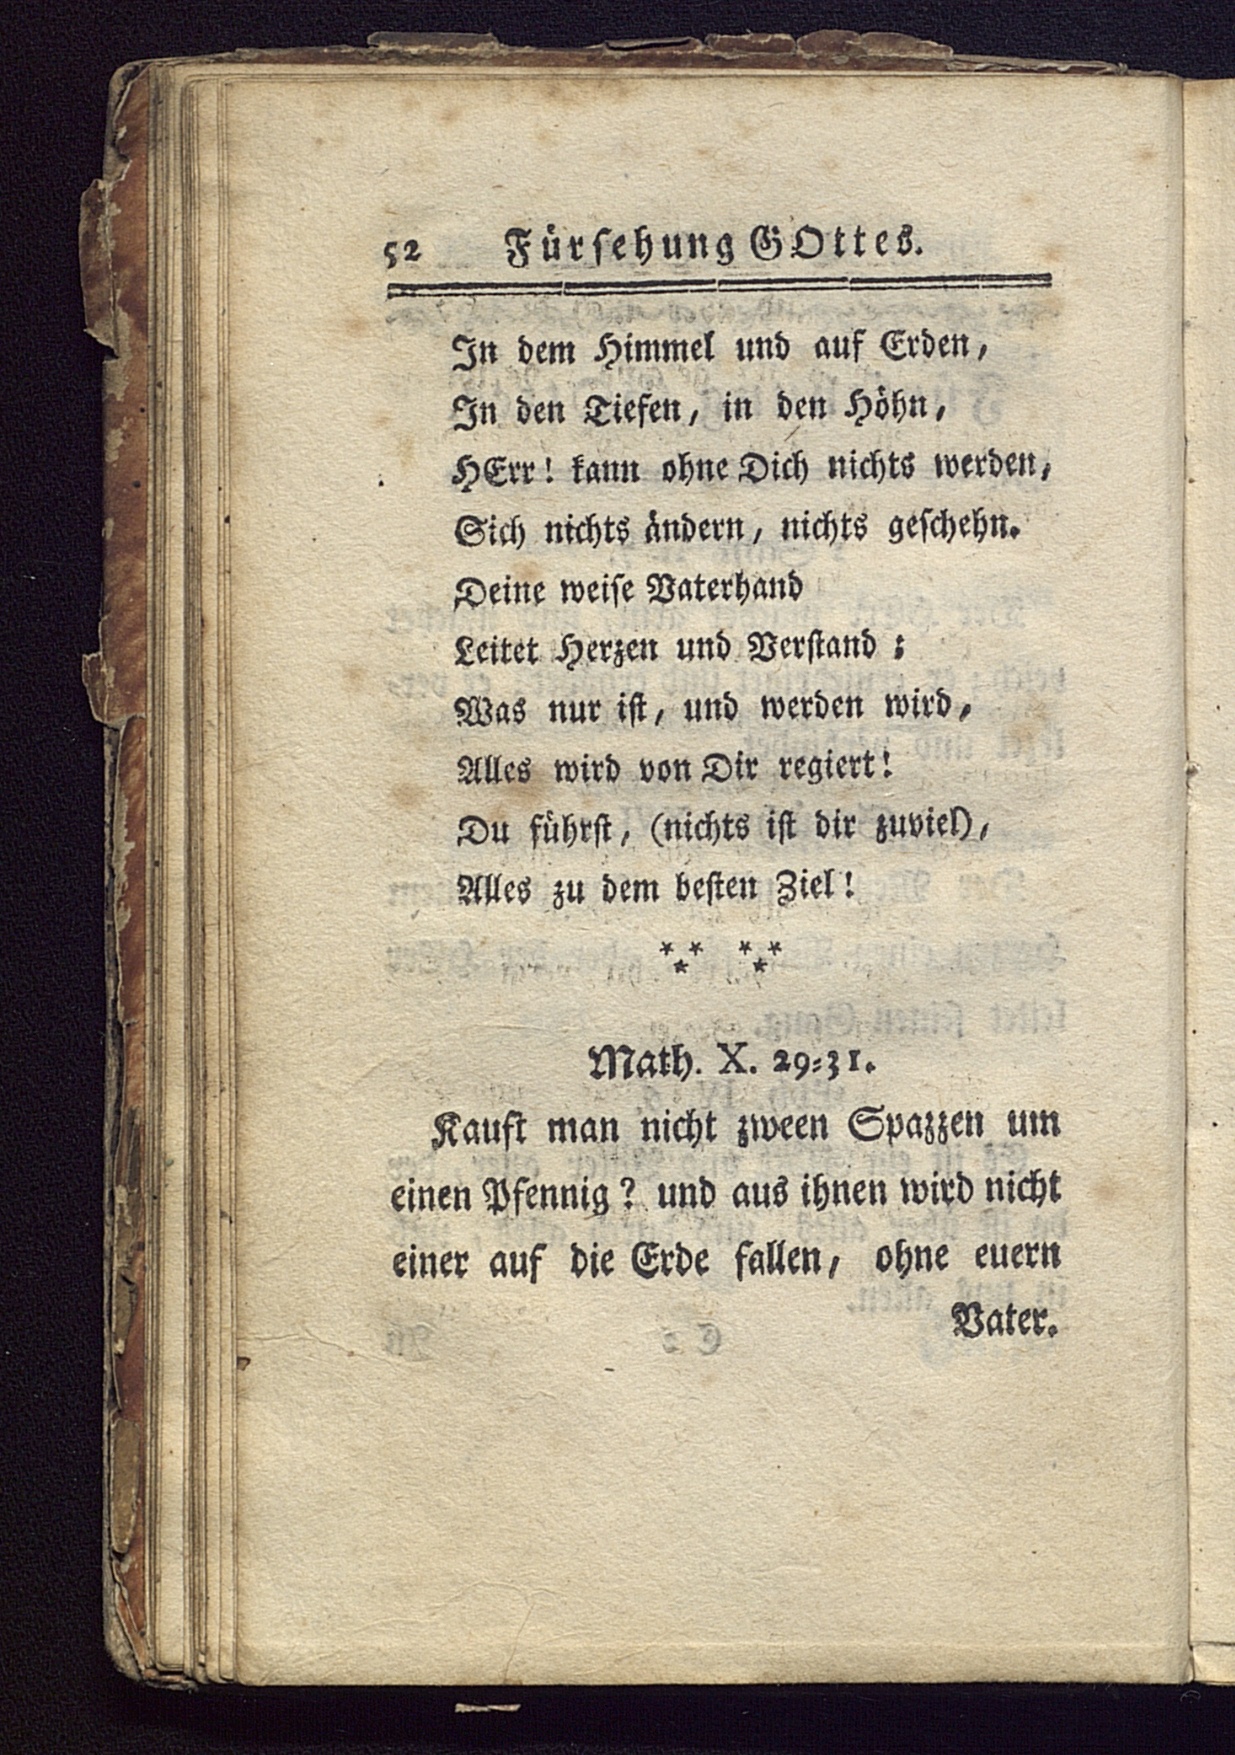 52 Fürſehung GOttes.
In dem Himmel und auf Erden,
In den Tiefen, in den Höhn,
HErr! kann ohne Dich nichts werden,
Sich nichts ändern, nichts geſchehn.
Deine weiſe Vaterhand
Leitet Herzen und Verſtand;
Was nur iſt, und werden wird,
Alles wird von Dir regiert!
Du führſt, (nichts iſt dir zuviel),
Alles zu dem beſten Ziel!
*** ***
Math. X. 29=31.
Kauft man nicht zween Spazzen um
einen Pfennig? und aus ihnen wird nicht
einer auf die Erde fallen, ohne euern
Vater.